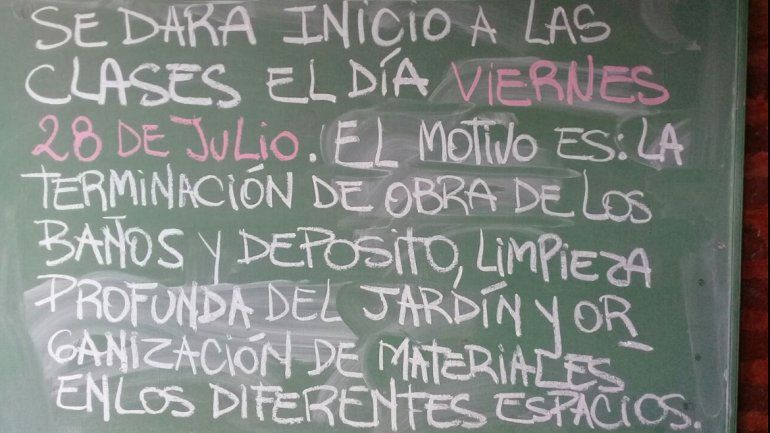 SE DARA INICIO A LAS
CLASES EL DÍA VIERNES
28 DE JULIO. EL MOTIVO ES: LA
TERMINACIÓN DE OBRA DE LOS
BAÑOS Y DEPOSITO, LIMPIEZA
PROFUNDA DEL JARDÍN Y OR_
GANIZACIÓN DE MATERIALES
EN LOS DIFERENTES ESPACIOS.